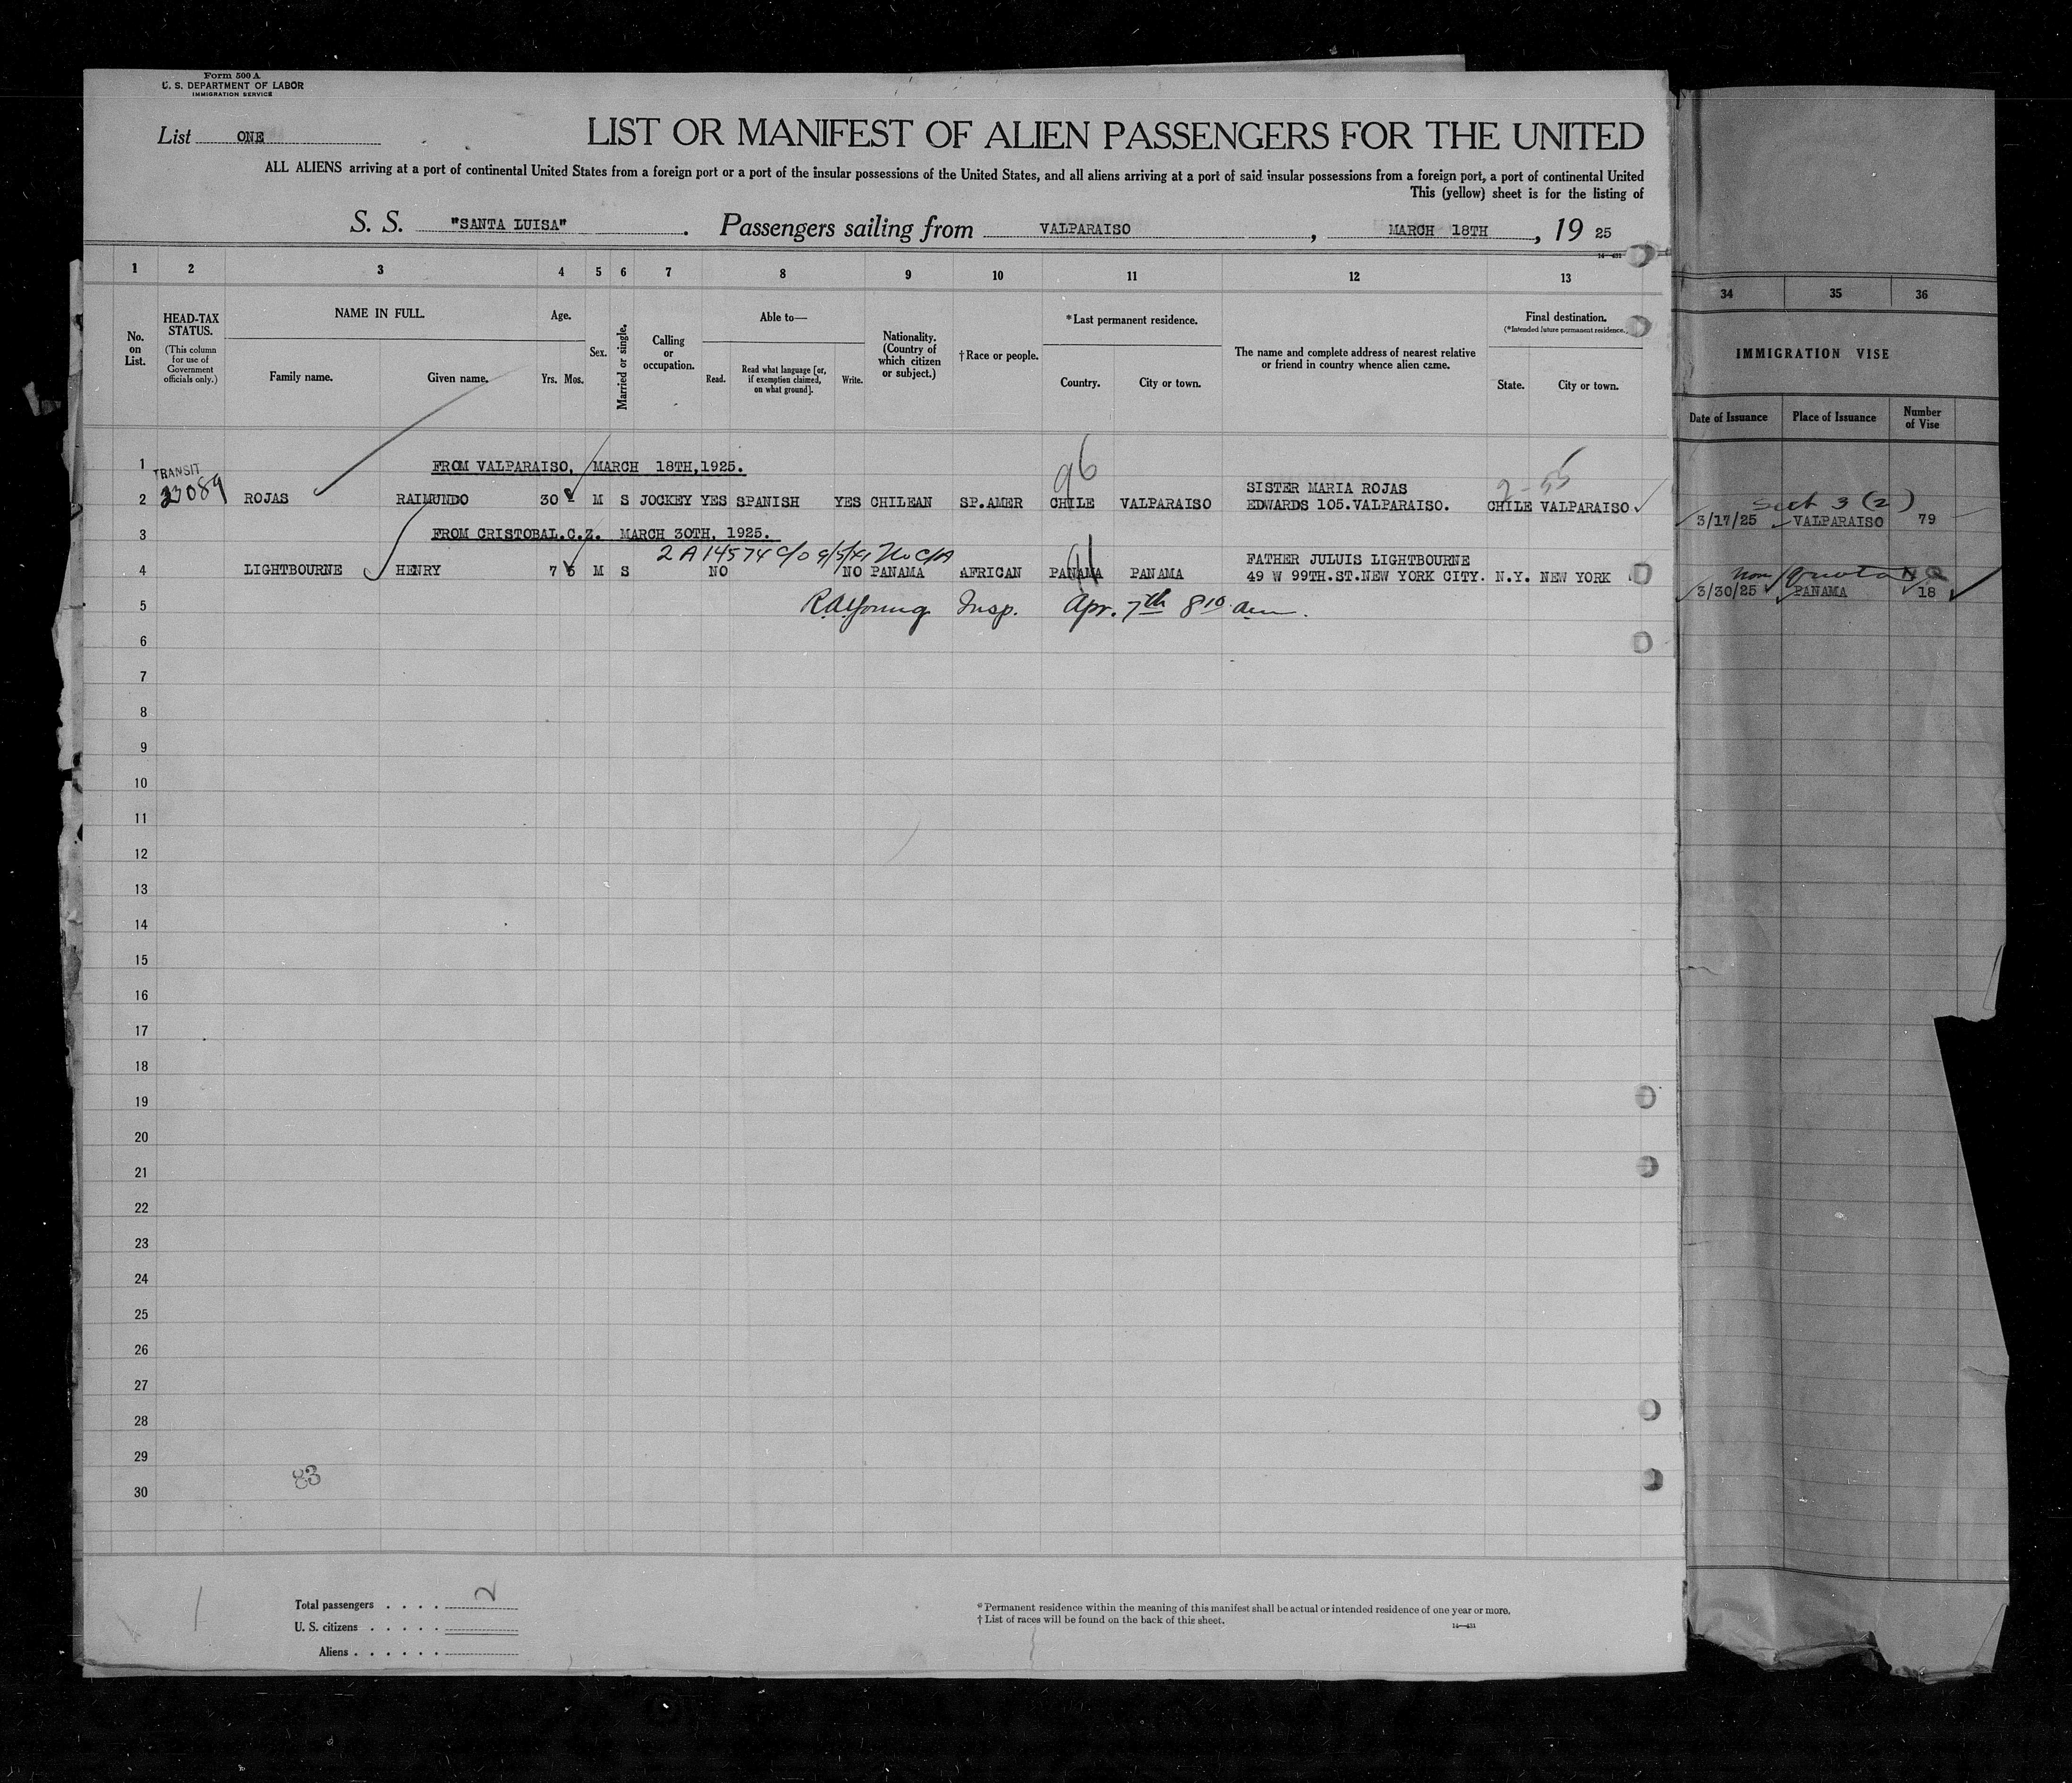 Form 500 A
U. S. DEPARTMENT OF LABOR
IMMIGRATION SERVICE
List ONE
LIST OR MANIFEST OF ALIEN PASSENGERS FOR THE UNITED
ALL ALIENS arriving at a port of continental United States from a foreign port or a port of the insular possessions of the United States, and all aliens arriving at a port of said insular possessions from a foreign port, a port of continental United
This (yellow) sheet is for the listing of
S. S. "SANTA LUISA". Passengers sailing from VALPARAISO, MARCH 18TH, 19 25
14—431
1 2 3 4 5 6 7 8 9 10 11 12 13 34 35 36
No. on List.
HEAD-TAX STATUS.
(This column for use of Government officials only.)
NAME IN FULL.
Family name. Given name.
Age.
Yrs. Mos.
Sex.
Married or single.
Calling or occupation.
Able to—
Read. Read what language [or, if exemption claimed, on what ground]. Write.
Nationality. (Country of which citizen or subject.)
†Race or people.
*Last permanent residence.
Country. City or town.
The name and complete address of nearest relative or friend in country whence alien came.
Final destination.
(*Intended future permanent residence.)
State. City or town.
IMMIGRATION VISE
Date of Issuance Place of Issuance Number of Vise
1 FROM VALPARAISO, MARCH 18TH,1925.
TRANSIT
96
SISTER MARIA ROJAS
Sect 3 (2)
2 23089 ROJAS RAIMUNDO 30 - M S JOCKEY YES SPANISH YES CHILEAN SP.AMER CHILE VALPARAISO EDWARDS 105.VALPARAISO. CHILE VALPARAISO 3/17/25 VALPARAISO 79
3 FROM CRISTOBAL.C.Z. MARCH 30TH, 1925.
2 A 14574 c/o 9/5/41 No C/A
FATHER JULUIS LIGHTBOURNE
Non quota N Q
4 LIGHTBOURNE HENRY 7 6 M S NO NO PANAMA AFRICAN PANAMA PANAMA 49 W 99TH.ST.NEW YORK CITY. N.Y. NEW YORK 3/30/25 PANAMA 18
5 RA Young Insp. Apr. 7th 8 10 am.
6
7
8
9
10
11
12
13
14
15
16
17
18
19
20
21
22
23
24
25
26
27
28
29
83
30
Total passengers . . . . 2
U. S. citizens . . . . .
Aliens . . . . . .
*Permanent residence within the meaning of this manifest shall be actual or intended residence of one year or more.
†List of races will be found on the back of this sheet.
14—431